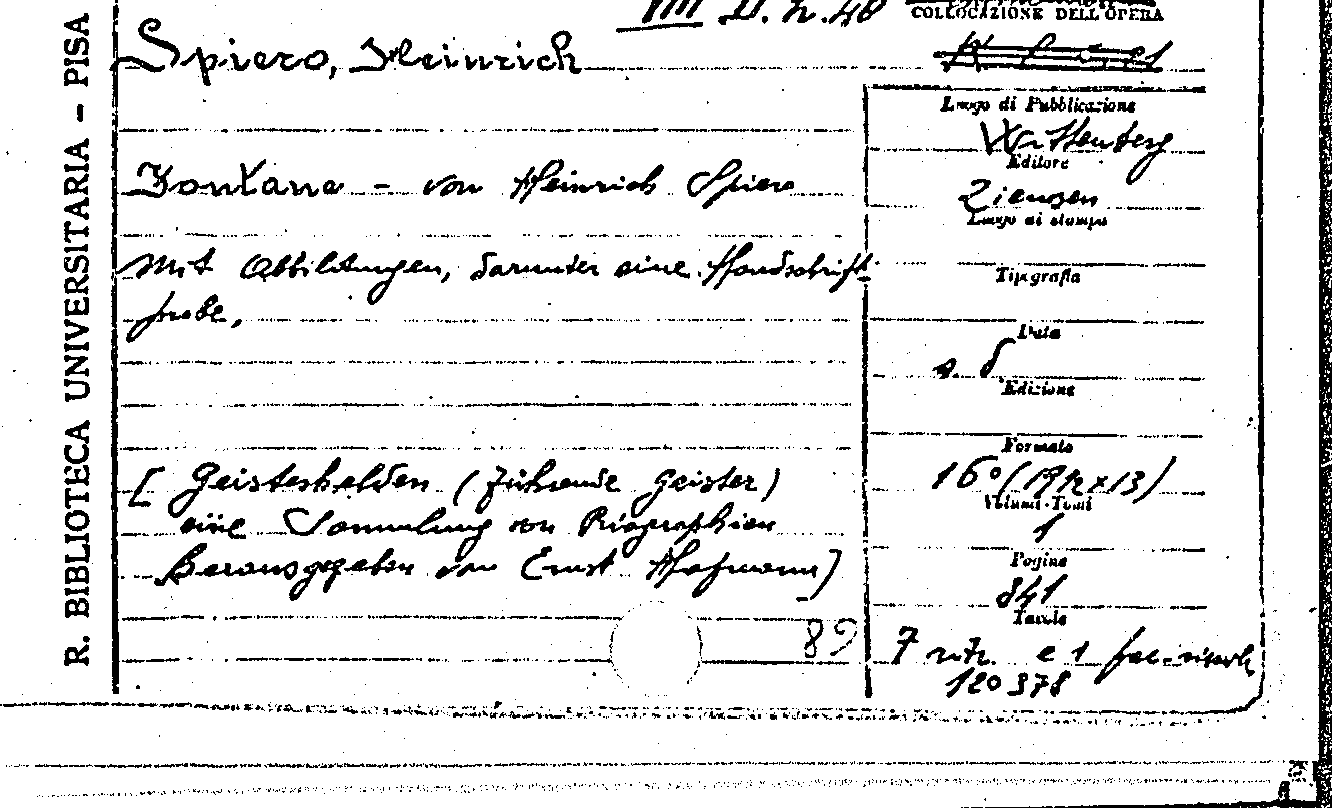 VIII D. n. 48
COLLOCAZIONE DELL'OPERA
R. BIBLIOTECA UNIVERSITARIA - PISA
Spiero, Heinrich
Luogo di Pubblicazione
Wittenberg
Editore
Fontane - von Heinrich Spiero
Ziemsen
Luogo di stampa
Mit Abbildungen, darunter eine Handschrift
probe,
Tipografia
Data
s. d
Edizione
Formato
[ Geisteshelden (Führende Geister)
16° (19½x13)
Volumi-Tomi
eine Sammlung von Biographien
1
Herausgegeben von Ernst Hofmann]
Pagine
341
Tavole
89
7 ritr. e 1
120378